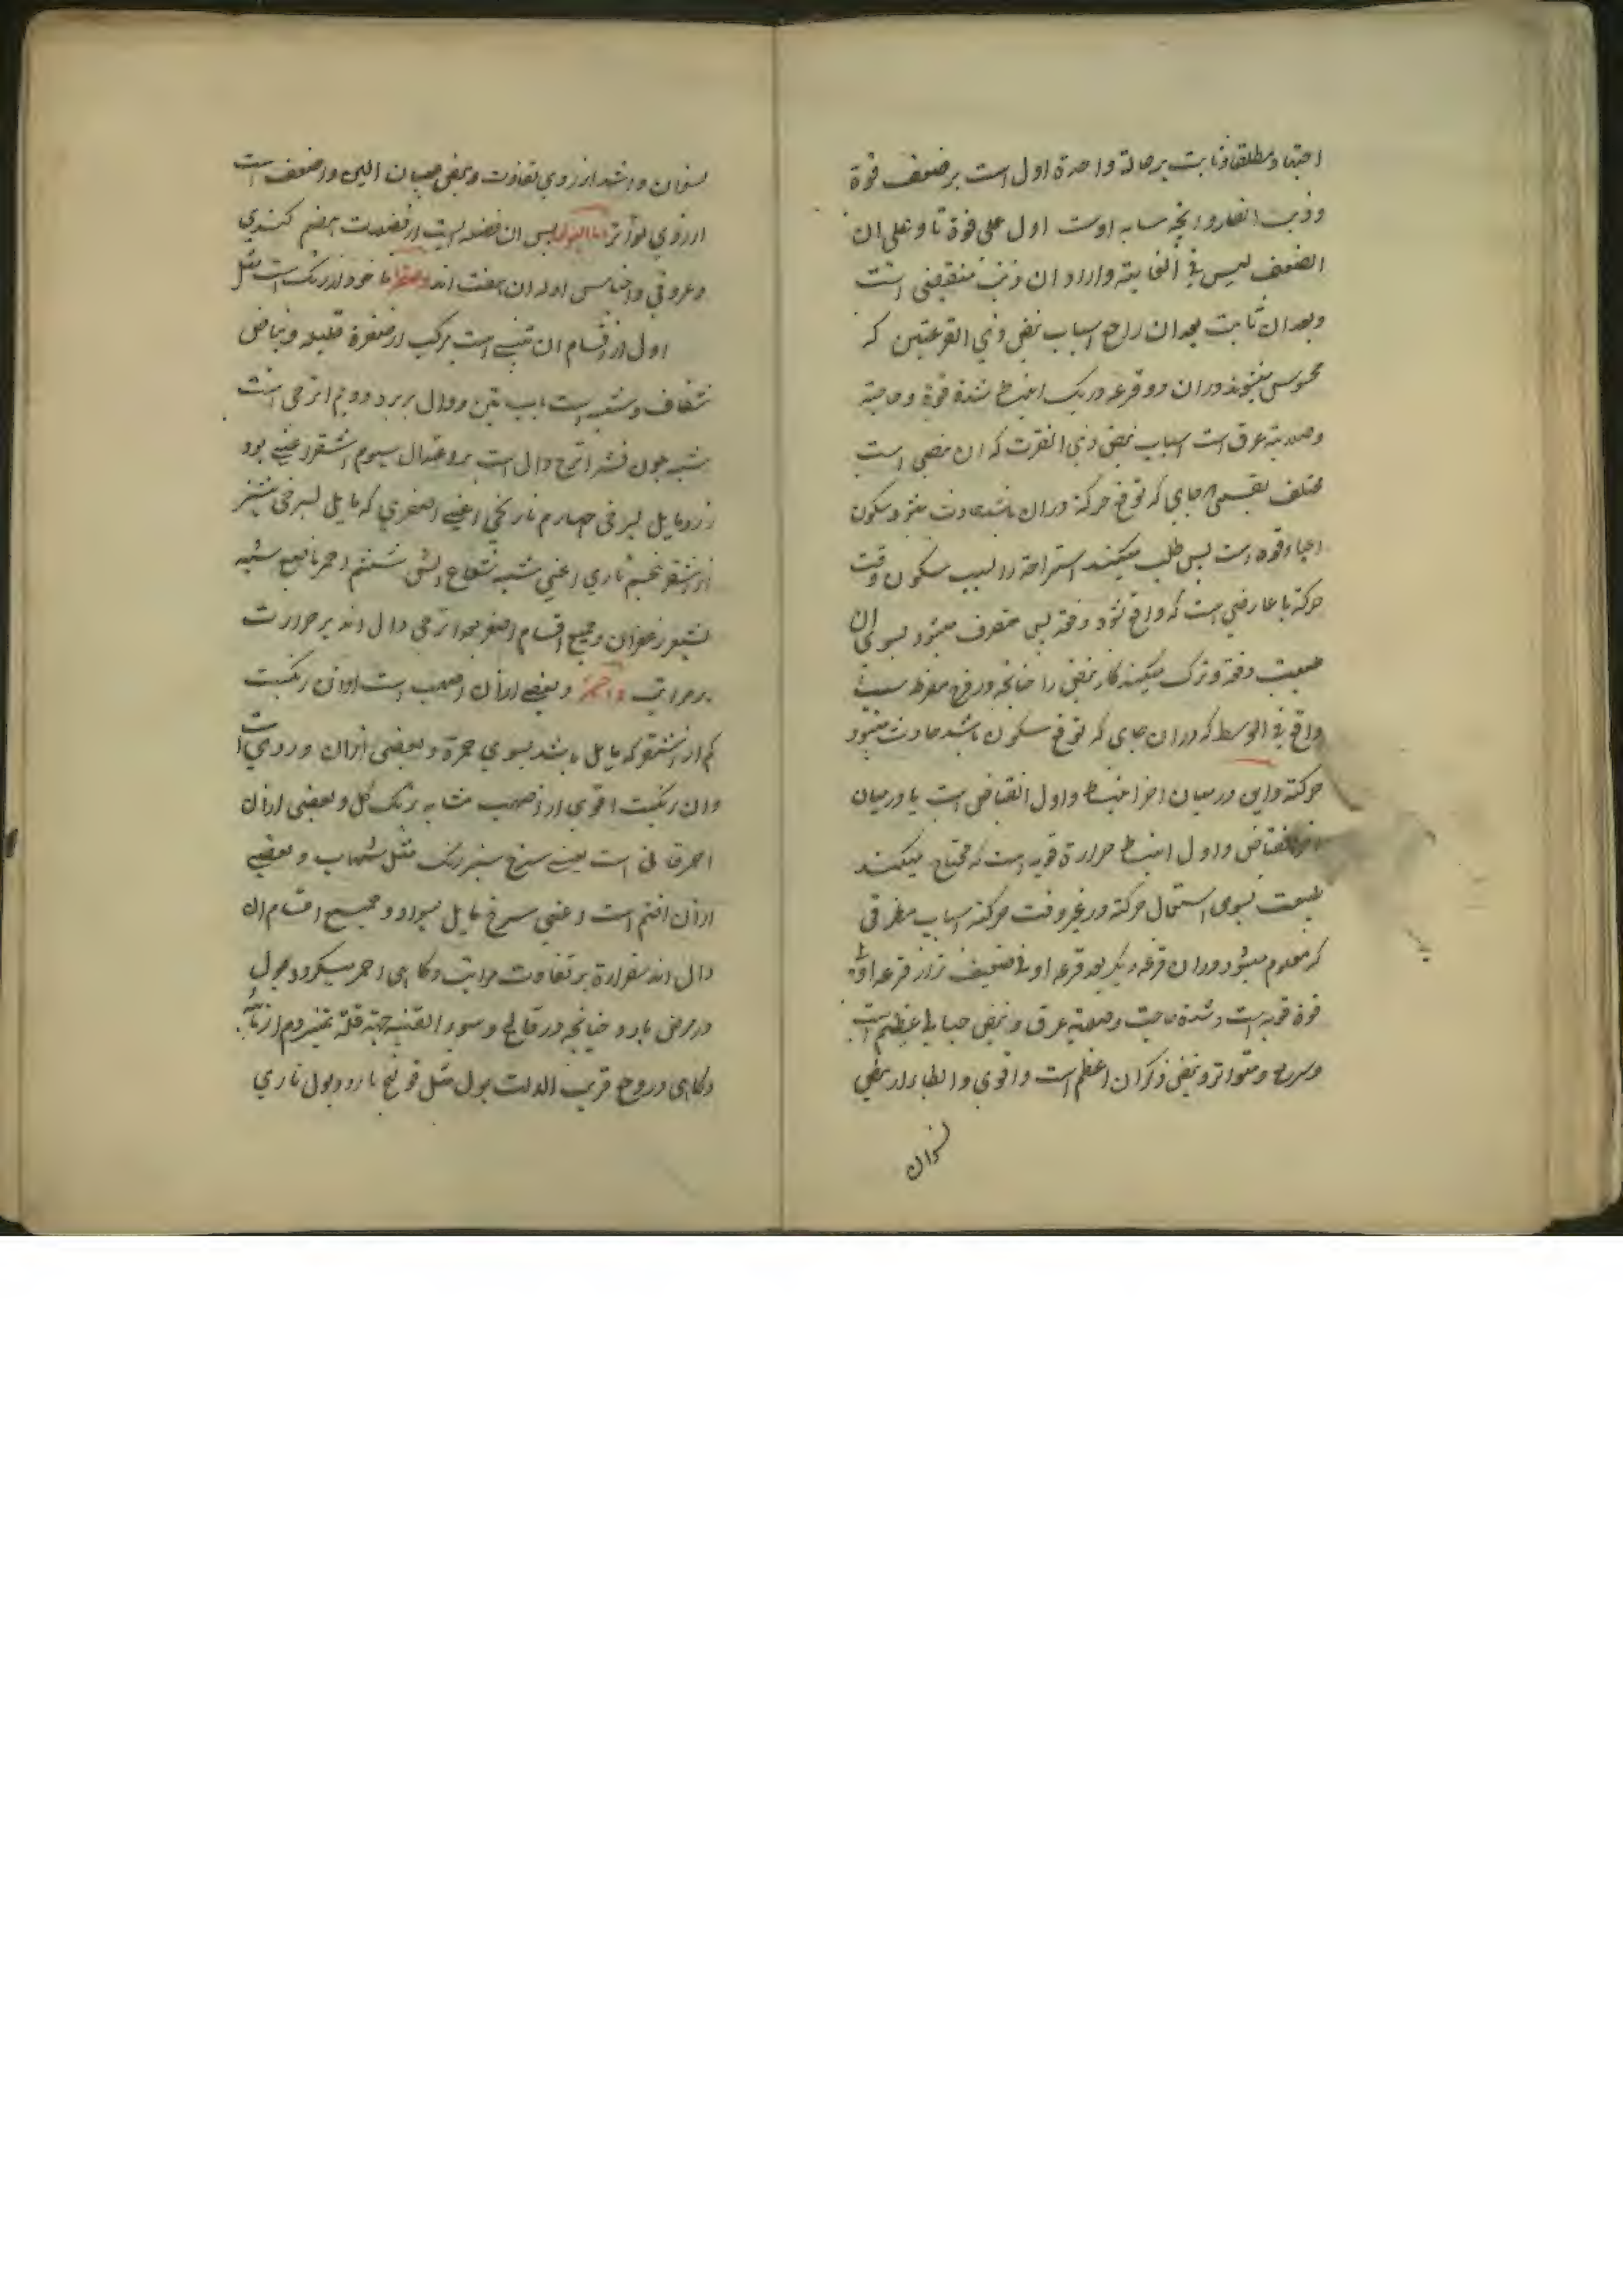 اجتهاد مطلقا و ثابت بر حالة واحدة اول است بر ضعف قوة
و ذنب الفار و انچه مشابه اوست اول علی قوة تا و علی ان
الضعف لیس فی الغایة و ازدوان ذنب منقضی است
و بعد ان ثابت بعد ان راجع اسباب نبض ذی القرعتین که
محسوس میشوند دران دو قرعه در یک انبساط شدة قوة و حاجة
و صلابة عرق است اسباب نبض ذی الفترت که ان نبضی است
مختلف بقسمی جای که توقع حرکة دران باشد حادث میشود سکون
اعیا و قوة است پس طلب میکند استراحة را بسبب سکون وقت
حرکة یا عارضی است که واقع شود دفعة پس متصرف میشود بسوی ان
طبیعت دفعة و ترک میکند کار نبض را چنانچه در فرح مفرط سبب
واقع فی الوسط که دران جای که توقع سکون باشد حادث میشود
حرکتة و این درمیان اخر انبساط و اول انقباض است یا درمیان
اخر انقباض و اول انبساط حرارة قویه است که محتاج میکند
طبیعت بسوی استعمال حرکة در غیر وقت حرکتة اسباب مطرقی
که معلوم میشود دران قرعه دیگر بعد قرعه اولی ضعیف تر از قرعه اولی
قوة قویه است و شدة حاجت و صلابة عرق و نبض حبالی عظیم است
و سریع و متواتر و نبض ذکران اعظم است و اقوی و ابطا از نبض
نسوان
نسوان و اشد از روی تفاوت و نبض صبیان الین و اضعف است
از روی تواتر اما البول پس ان فضله است از فضلات هضم کبدی
و عروقی و اجناس اوله ان هفت اند و صفرا ماخوذ از رنگ است مثل
اول از اقسام ان تبنی است مرکب از صفرة قلیله و بیاض
شفاف و شبیه است باب تبن و دال بر برد دویم اترجی است
شبیه بلون قشر اترج و دال است بر اعتدال سیوم اشقر اعنی بود
زرد مایل بسرخی چهارم نارنجی اعنی اصفری که مایل بسرخی بیشتر
از اشقر پنجم ناری اعنی شبیه شعاع اتش ششم احمر ناصع شبیه
بشعر زعفران و جمیع اقسام اصفر بجز اترجی دال اند بر حرارت
و مراتب و احمر و بعضی ازان اصهب است و ان رنگیست
کم از اشقر که مایل باشد بسوی حمرة و بعضی ازان وردی است
و ان رنگیست اقوی از اصهب مشابه برنگ گل و بعضی ازان
احمر قانی است یعنی سرخ سیر رنگ مثل شهاب و بعضی
ازان اقتم است و اعنی سرخ مایل بسواد و جمیع اقسام ان
دال اند بحرارة بر تفاوت مراتب و گاهی احمر میگردد بول
در مرض بارد چنانچه در فالج و سوء القنیه جهة قلة تمیز دم از مائیه
و گاهی در وجع قریب الات بول مثل قولنج بارد و بول ناری